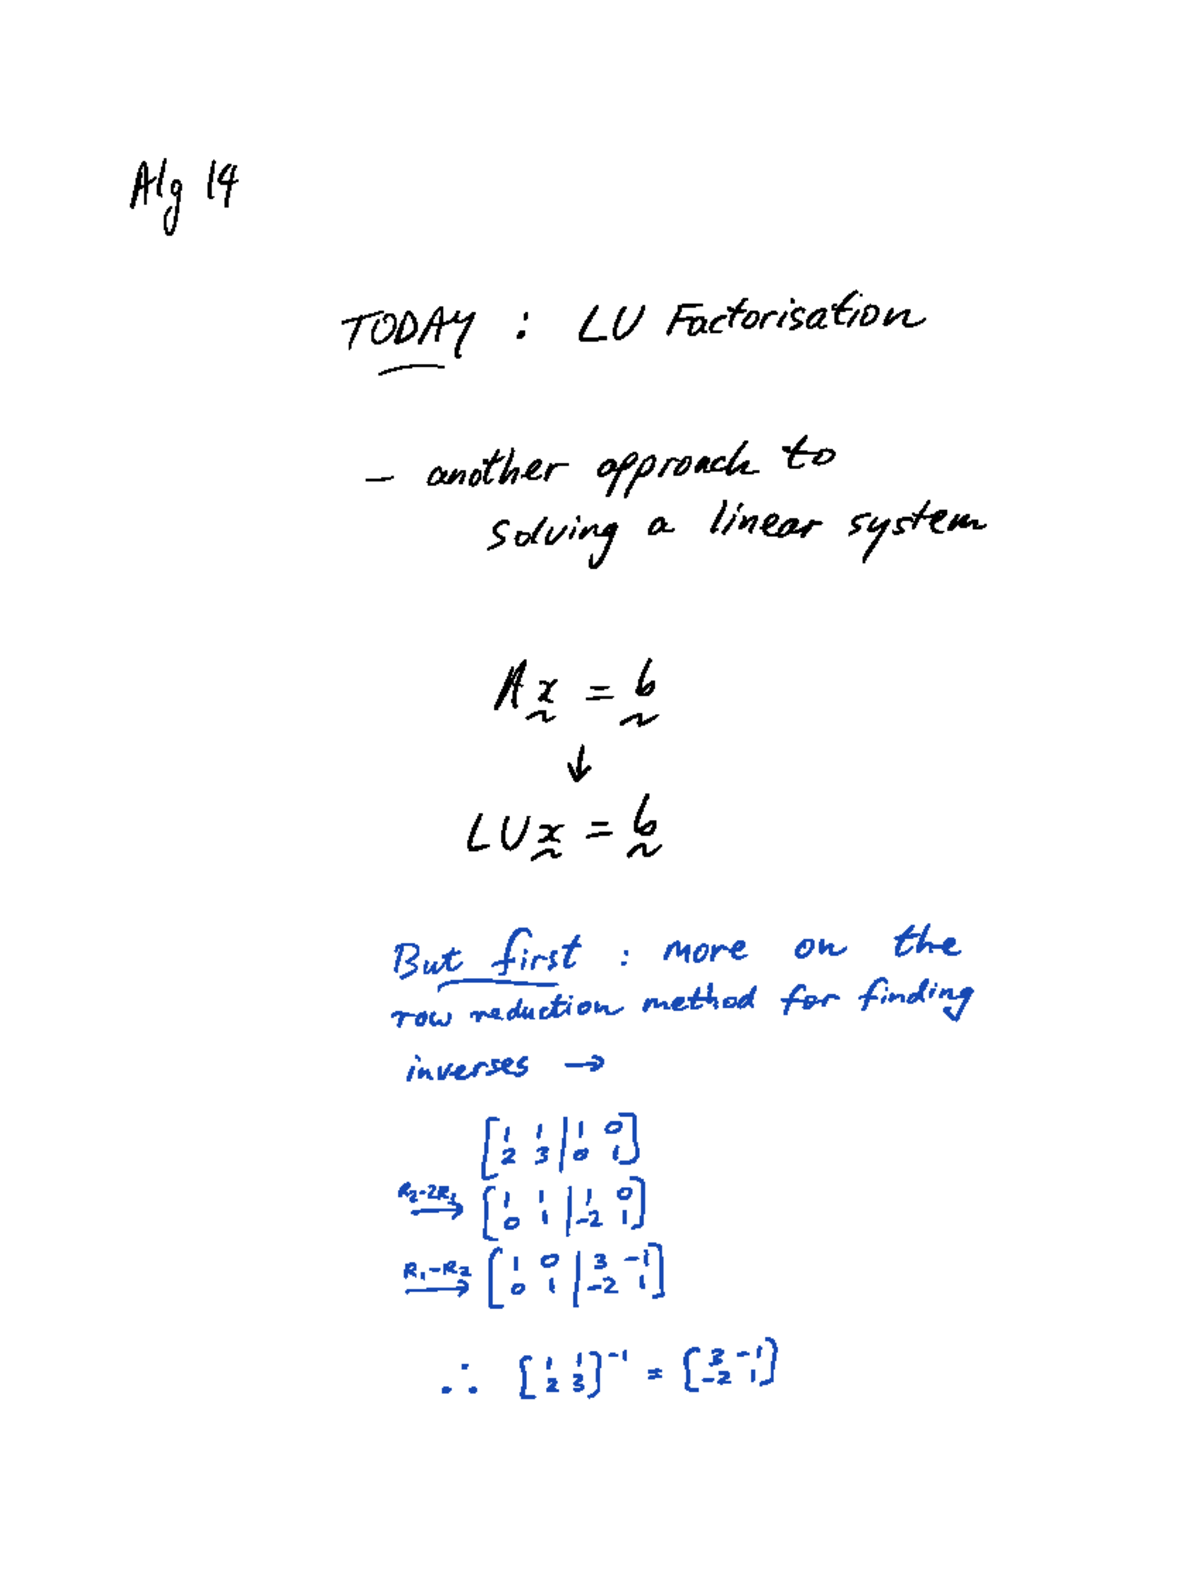 Alg 14
TODAY : LU Factorisation
- another approach to
solving a linear system
A x = b
↓
LU x = b
But first : more on the
row reduction method for finding
inverses →
[1 1 | 1 0]
[2 3 | 0 1]
R2-2R1 → [1 1 | 1 0]
[0 1 | -2 1]
R1-R2 → [1 0 | 3 -1]
[0 1 | -2 1]
∴ [1 1; 2 3]⁻¹ = [3 -1; -2 1]